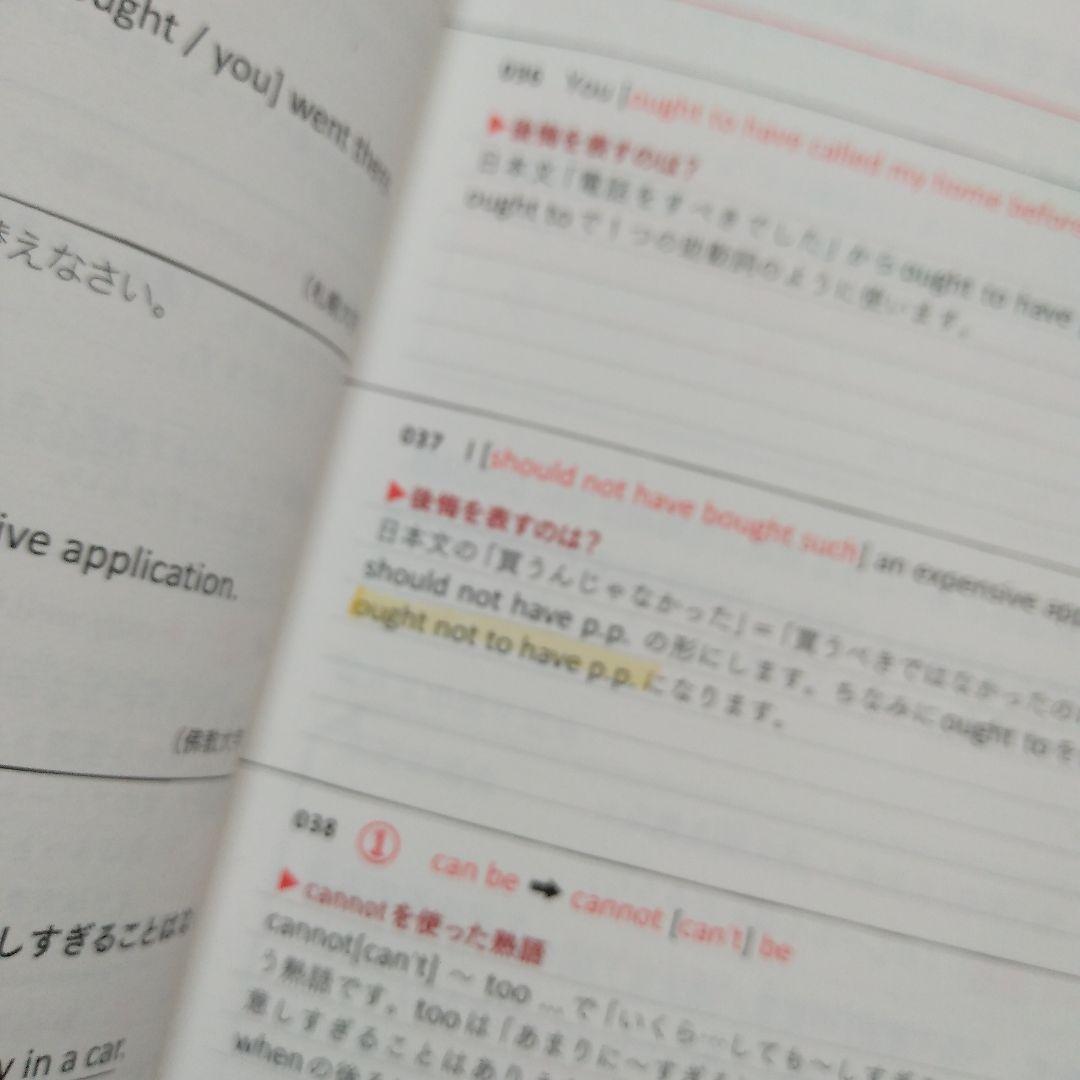 ught / you] went then
えなさい。
ive application.
(佛教大
しすぎることはな
y in a car.
036 You [ought to have called my home before
▶後悔を表すのは？
日本文「電話をすべきでした」から ought to have
ought to で1つの助動詞のように使います。
037 I [should not have bought such] an expensive app
▶後悔を表すのは？
日本文の「買うんじゃなかった」＝「買うべきではなかったの
should not have p.p. の形にします。ちなみに ought to を
ought not to have p.p. になります。
038 ① can be ➡ cannot [can't] be
▶cannotを使った熟語
cannot[can't] ～ too … で「いくら…しても～しすぎ
う熟語です。tooは「あまりに～すぎ
意しすぎることはあり
whenの後